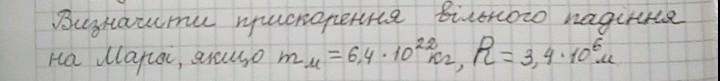 Визначити прискорення вільного падіння
на Марсі, якщо m м = 6,4 · 10²²кг, R = 3,4 · 10⁶м